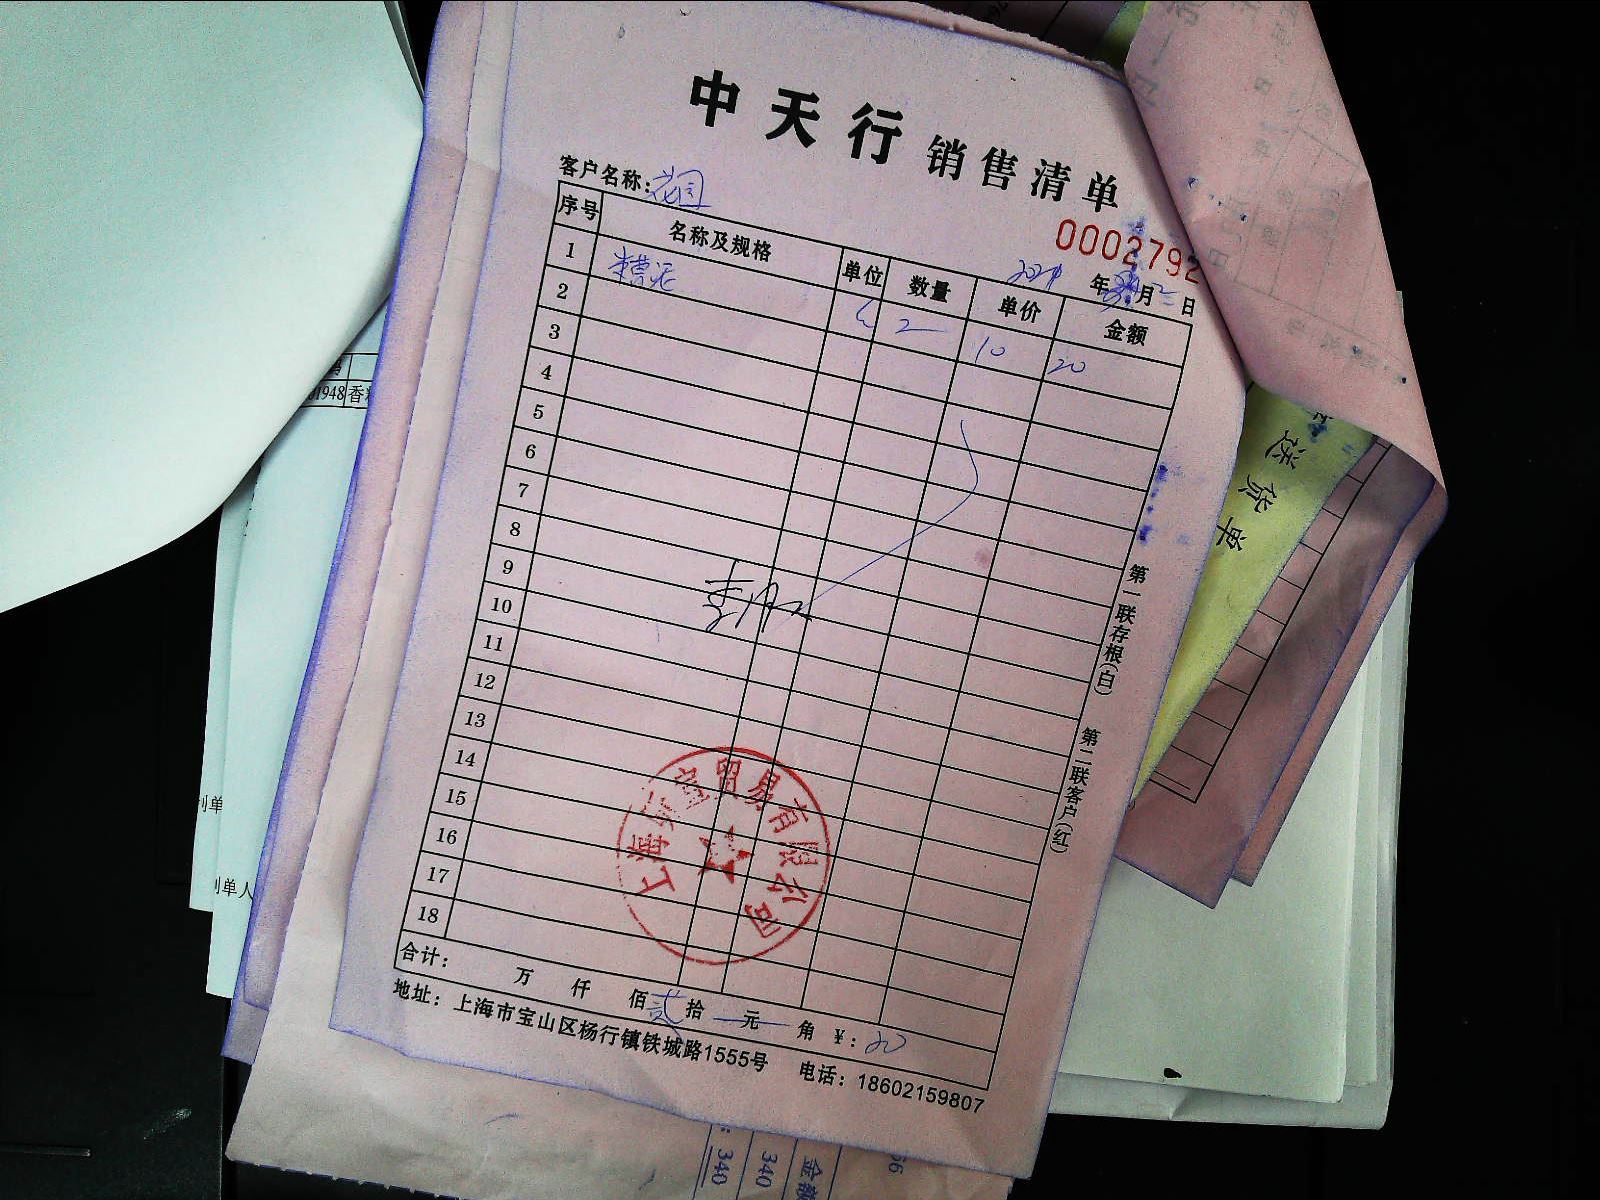 中天行 销售清单
客户名称：花园
0002792
年 月 二 日
序号 名称及规格 单位 数量 单价 金额
1 2 10 20
2
3
4
5
6
7
8
9
10
11
12
13
14
15
16
17
18
合计： 万 仟 佰 贰 拾 元 角 ￥：20
地址：上海市宝山区杨行镇铁城路1555号 电话：18602159807
第一联存根(白) 第二联客户(红)
贸易有限公司
上海
送货单
01948 香
制单
制单人
340
340
金额